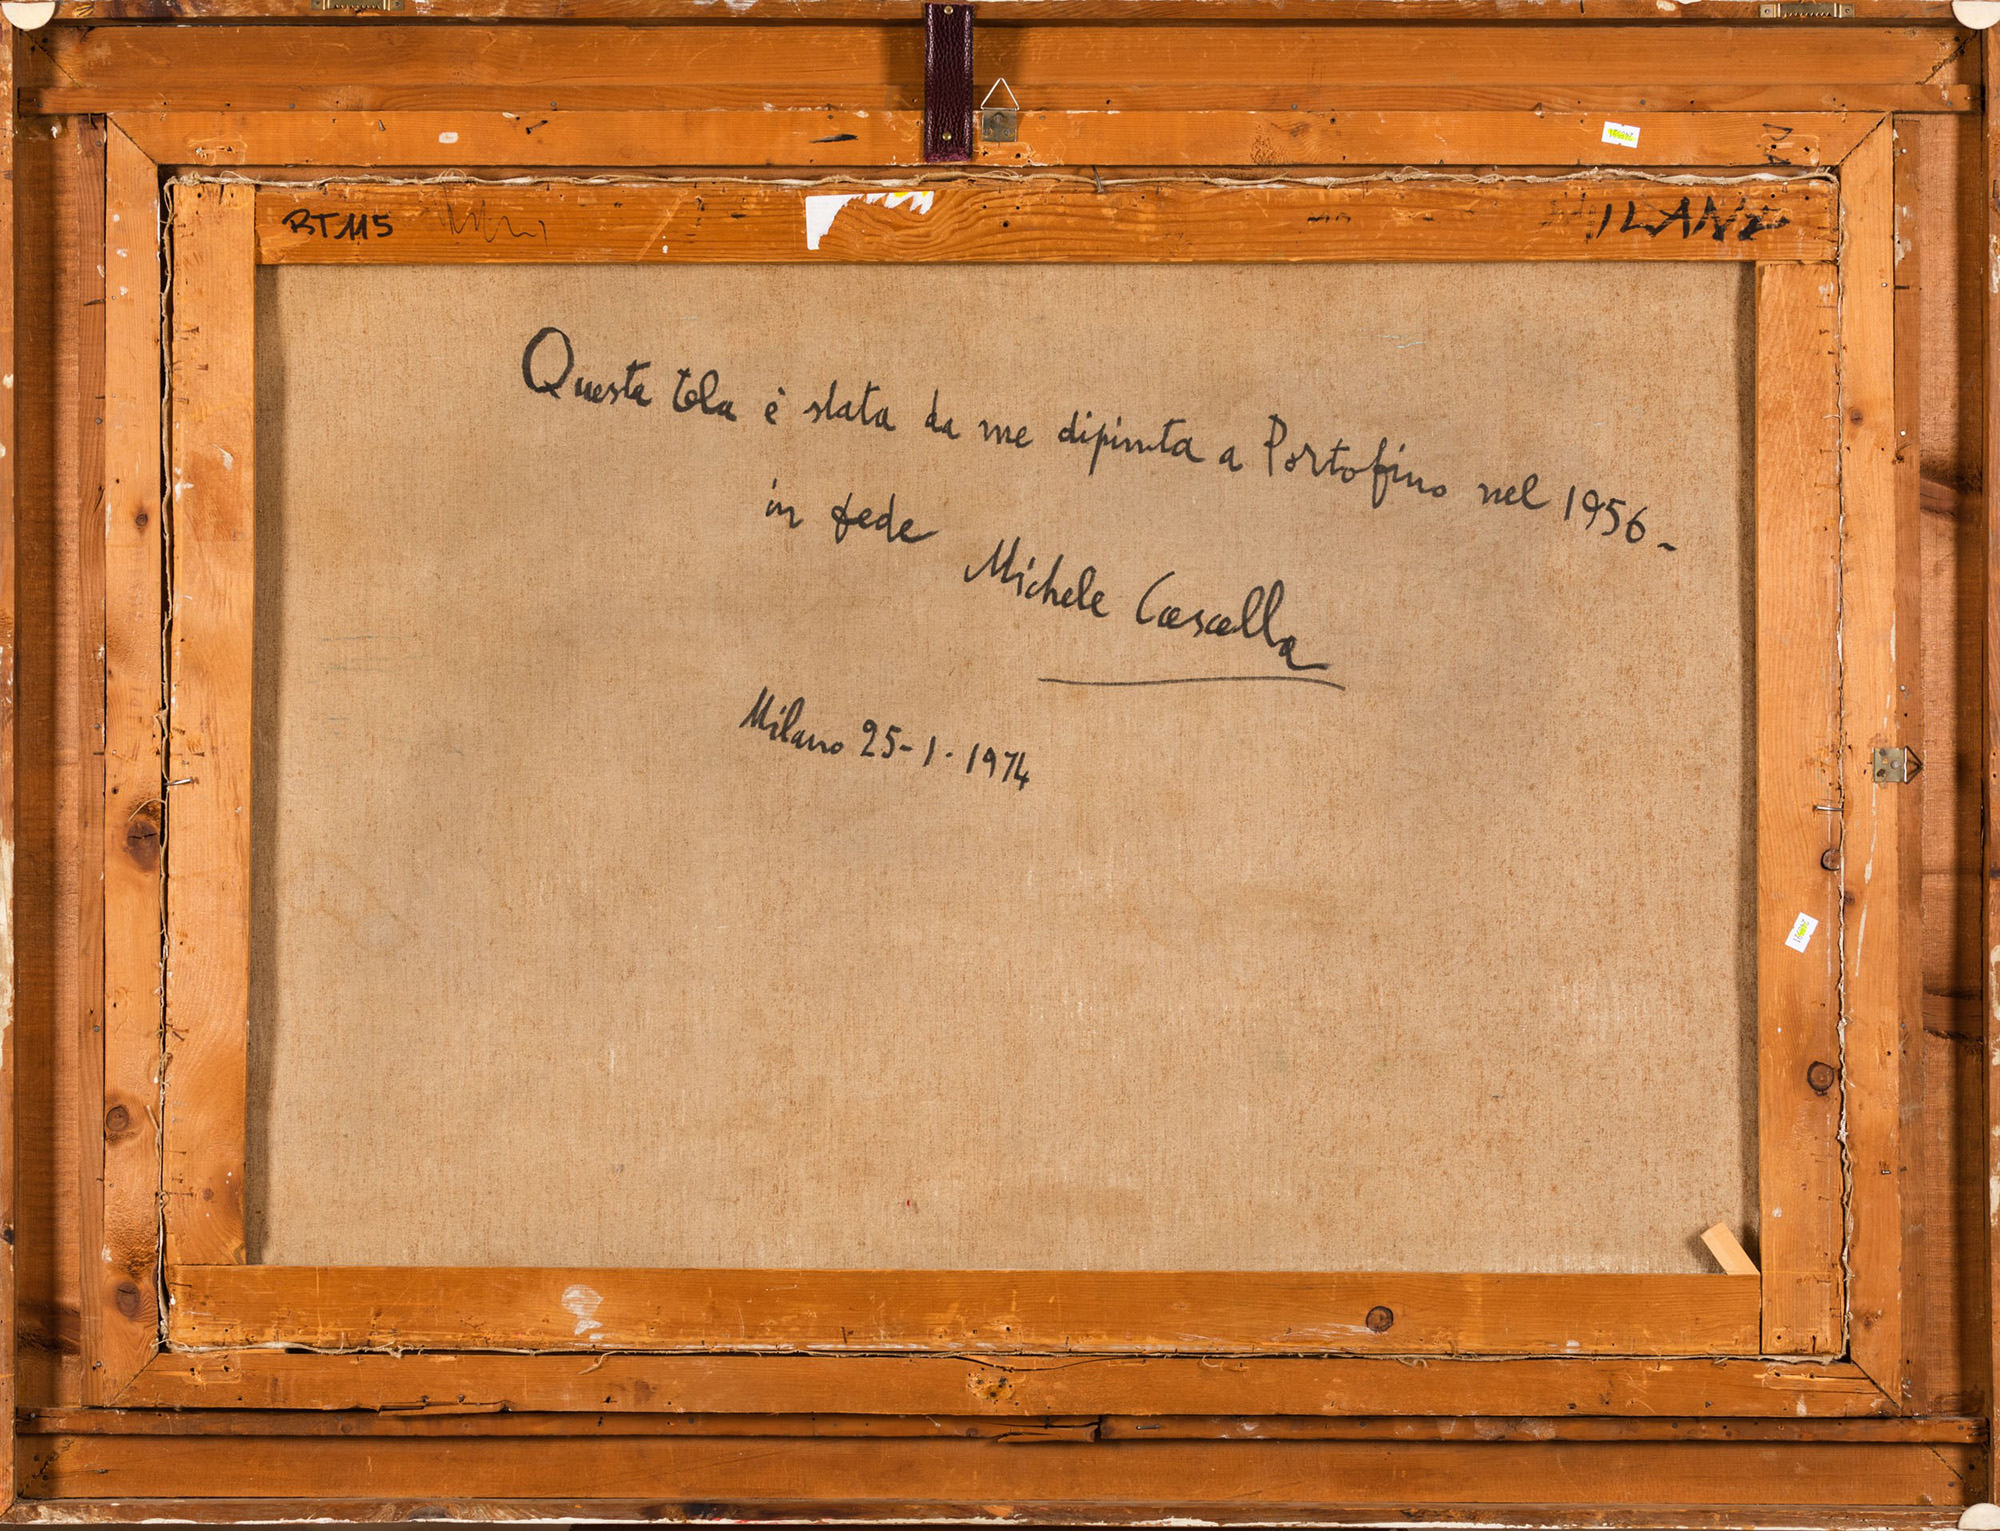 RT115
MILANO
Questa tela è stata da me dipinta a Portofino nel 1956-
in fede
Michele Cascella
Milano 25-1-1974